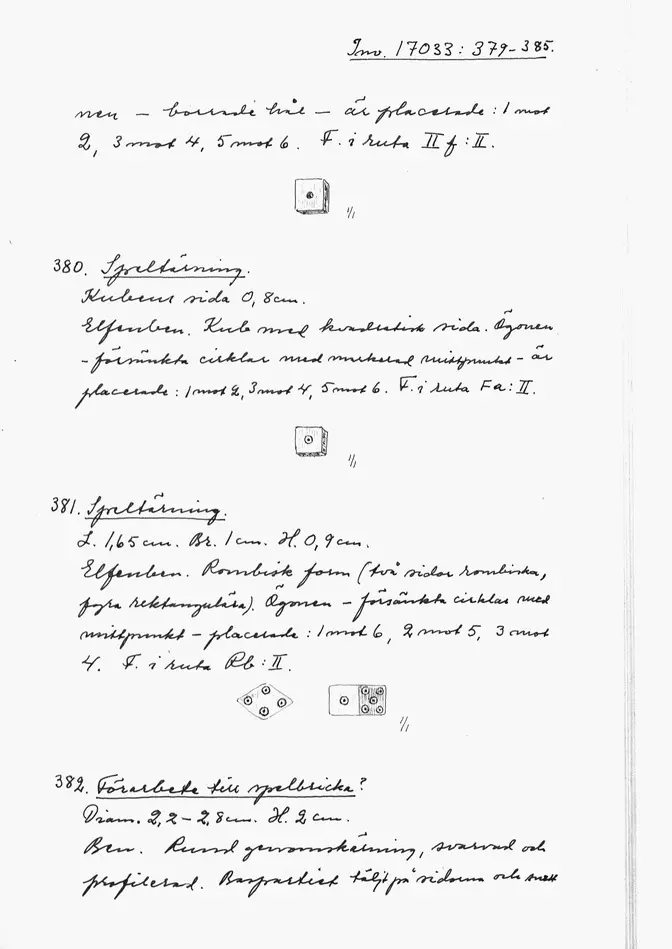 Inv. 17033: 379-385.
nen — borrade hål — är placerade: 1 mot
2, 3 mot 4, 5 mot 6. F. i ruta II f: II.
1/1
380. Speltärning.
Kubens sida 0,8 cm.
Elfenben. Kub med kvadratisk sida. Ögonen
- försänkta cirklar med markerad mittpunkt - är
placerade: 1 mot 2, 3 mot 4, 5 mot 6. F. i ruta Fa: II.
1/1
381. Speltärning.
L. 1,65 cm. Br. 1 cm. H. 0,9 cm.
Elfenben. Rombisk form (två sidor rombiska,
fyra rektangulära). Ögonen - försänkta cirklar med
mittpunkt - placerade: 1 mot 6, 2 mot 5, 3 mot
4. F. i ruta Rb: II.
1/1
382. Förarbete till spelbricka?
Diam. 2,2 - 2,8 cm. H. 2 cm.
Ben. Rund genomskärning, svarvad och
profilerad. Baspartiet täljt på sidorna och